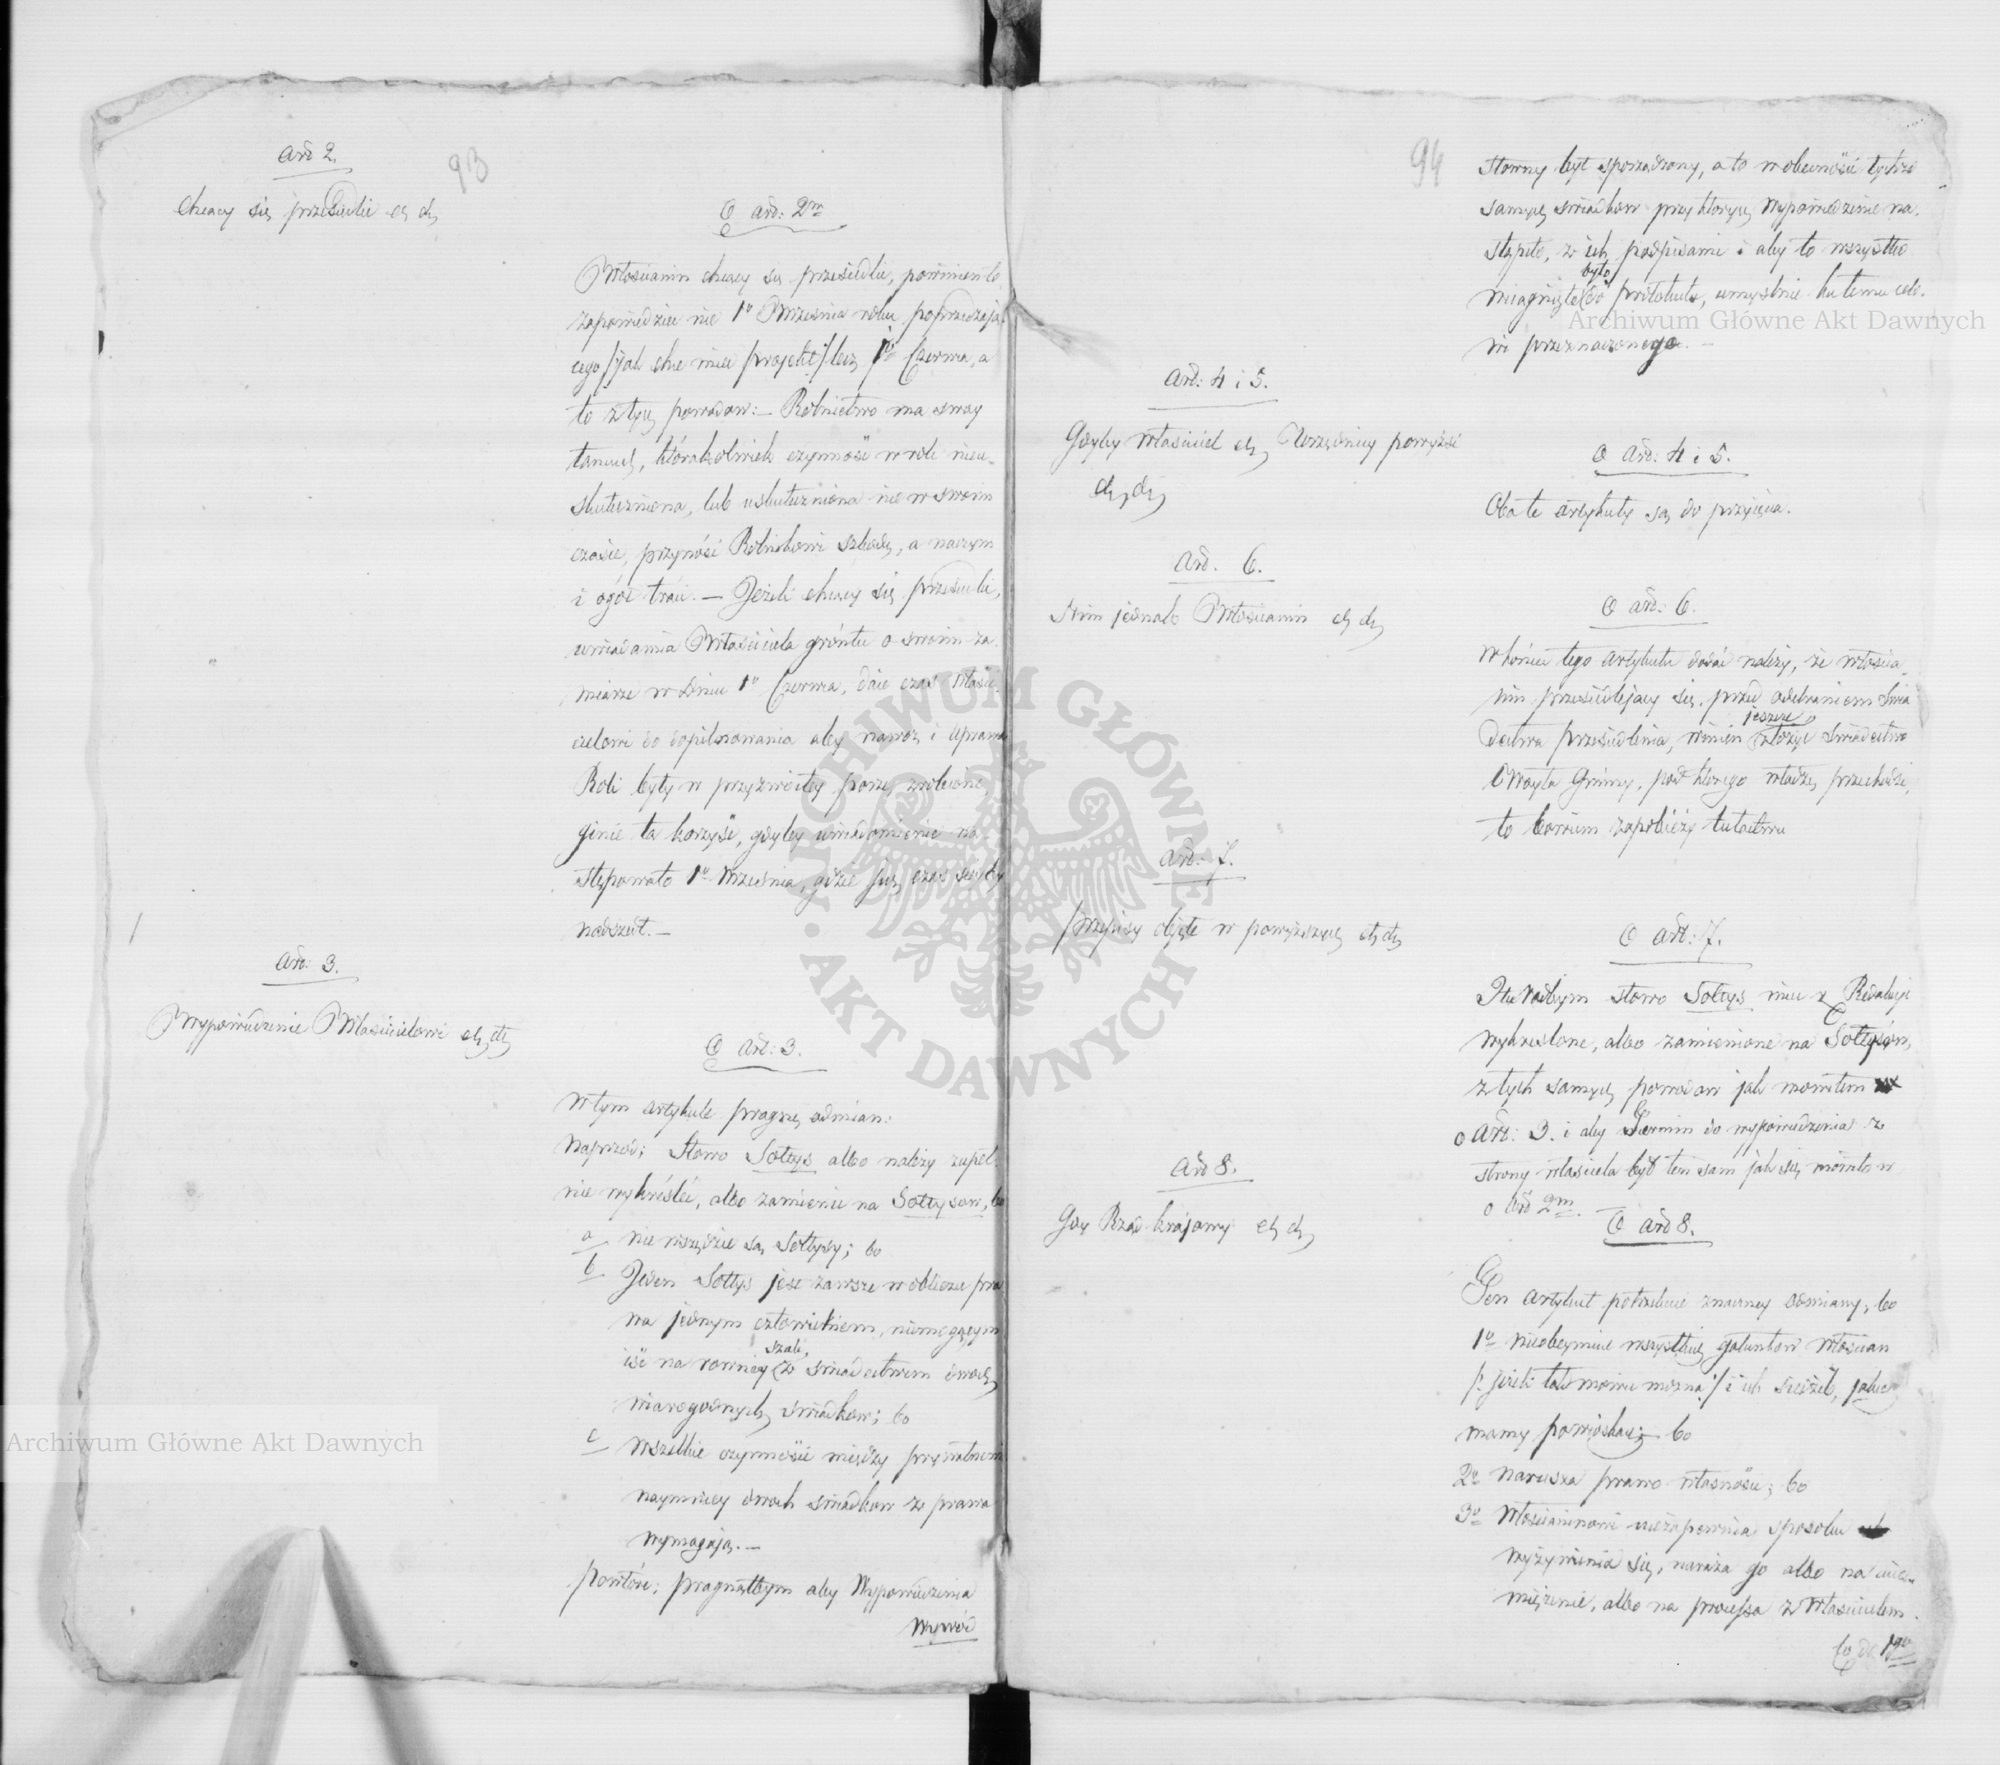 Art 2.
93
Chcący się przesiedlić etc etc
O art: 2m
Włościanin chcący się przesiedlić, powinien to
zapowiedzieć nie 1o Września roku poprzedzają-
cego /:jak chce mieć projekt:/ lecz 1o Czerwca, a
to z tych powodow:— Rolnictwo ma swoy
łancuch, którakolwiek czynność w roli nieu-
skuteczniona, lub uskuteczniona nie w swoim
czasie, przynósi Rolnikowi szkodę, a na czym
i ogół tráci. — Jeżeli chcący się przesiedlić,
uwiadamia Właściciela gróntu o swoim za-
miarze w dniu 1o Czerwca, daie czas Właści-
cielowi do dopilnowania aby nawóz i uprawa
Roli były w przyzwoitey porze zrobione,
ginie ta korzyść, gdyby uwiadomienie na-
stępowało 1o Września, gdzie już czas siewby
nadszedł.—
Art: 3.
Wypowiedzenie Właścicielowi etc etc
O Art: 3.
W tym artykule pragnę odmian:
Naprzód; Słowo Sołtys albo należy zupeł-
nie wykréślić, albo zamienić na Sołtysow, bo
a nie wszędzie są Sołtysy; bo
b Jeden Sołtys jest zawsze w obliczu pra
wa jednym człowiekiem, niemogącym
szali,
iść na rowney ze świadectwem dwoch
wiarogodnych świadkow; bo
c Wszelkie czynności między prywatnemi
naymniey dwoch świadkow z prawa
wymagają.—
powtóre; pragnąłbym aby Wypowiedzenia
Wywód
94
słowny był sporządzony, a to w obecności tychże
samych świadkow przy których Wypowiedzenie na-
stąpiło, z ich podpisami i aby to wszystko
było
wciągnięte do protokułu, umyślnie ku temu celo-
wi przeznaczonego.—
Art: 4 i 5.
Gdyby Właściciel etc Urzędnicy powyżsi
etc etc
O Art: 4 i 5.
Oba te artykuły są do przyięcia.
Art. 6.
Nim jednak Włościanin etc etc
O art: 6.
W końcu tego artykułu dodać należy, że włościa-
nin przesiedlający się, przed odebraniem Świa
jeszcze
dectwa przesiedlenia, winien złożyć świadectwo
Woyta Gminy, pod którego władzę przechodzi,
to bowiem zapobieży tułactwu
Art: 7.
Przepisy objęte w powyższych etc etc
O Art: 7.
I tu radbym słowo Sołtys mieć z Redakcyi
wykreślone, albo zamienione na Sołtysów,
z tych samych powodow jak mowiłem
o Art: 3. i aby Termin do wypowiedzenia ze
strony właściciela był ten sam jak się mówiło w
o Art 2m.
Art 8.
Gdy Rząd krajowy etc etc
O Art 8.
Ten artykuł potrzebuie znaczney odmiany, bo
1o nieobeymuie wszystkich gatunków włościan
/: jeżeli tak mowić można :/ i ich siedzib, jakie
mamy po wioskach; bo
2o narusza prawo własności; bo
3o Włościaninowi niezapewnia sposobu
wyżywienia się, naraża go albo na ucie-
miężenie, albo na processa z Właścicielem.
Co do 1go
Archiwum Główne Akt Dawnych
Archiwum Główne Akt Dawnych
ARCHIWUM GŁÓWNE AKT DAWNYCH